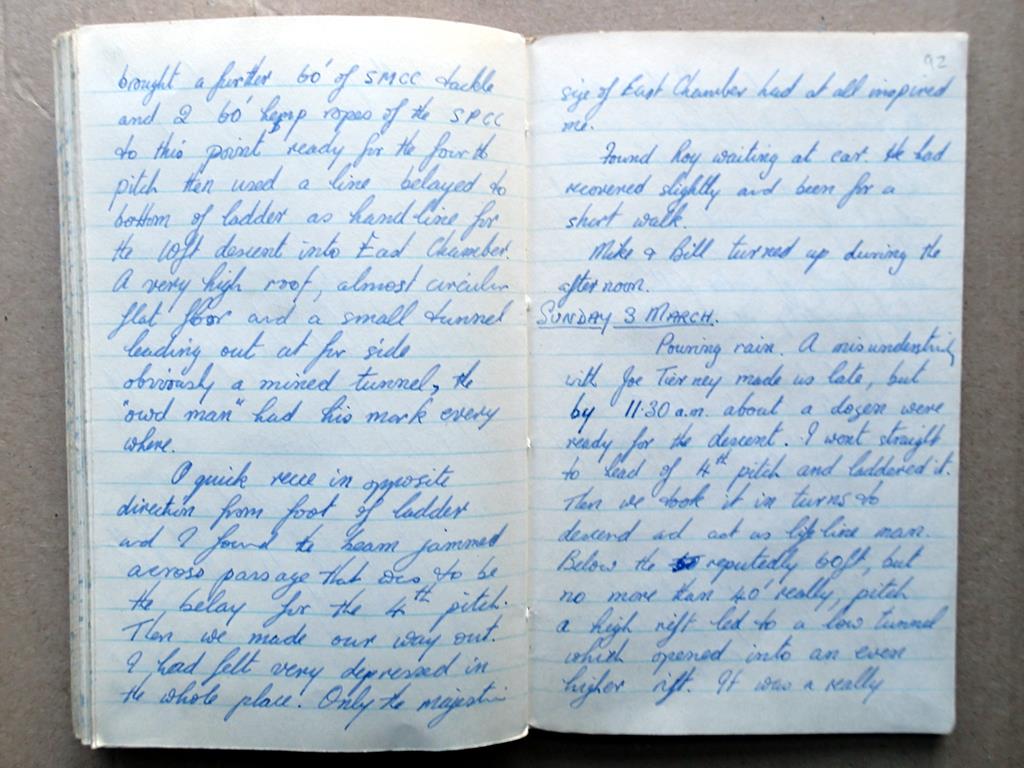 brought a further 60' of SMCC tackle
and 2 60' hemp ropes of the SPCC
to this point ready for the fourth
pitch then used a line belayed to
bottom of ladder as handline for
the 10ft descent into East Chamber.
A very high roof, almost circular
flat floor and a small tunnel
leading out at far side
obviously a mined tunnel, the
"owd man" had his mark every
where.
A quick recce in opposite
direction from foot of ladder
and I found the beam jammed
across passage that was to be
the belay for the 4th pitch.
Then we made our way out.
I had felt very depressed in
the whole place. Only the majestic
92
size of East Chamber had at all inspired
me.
Found Roy waiting at car. He had
recovered slightly and been for a
short walk.
Mike & Bill turned up during the
afternoon.
SUNDAY 3 MARCH.
Pouring rain. A misunderstanding
with Joe Tierney made us late, but
by 11.30 a.m. about a dozen were
ready for the descent. I went straight
to head of 4th pitch and laddered it.
Then we took it in turns to
descend and act as life-line man.
Below the reputedly 60ft, but
no more than 40' really, pitch
a high rift led to a low tunnel
which opened into an even
higher rift. It was a really